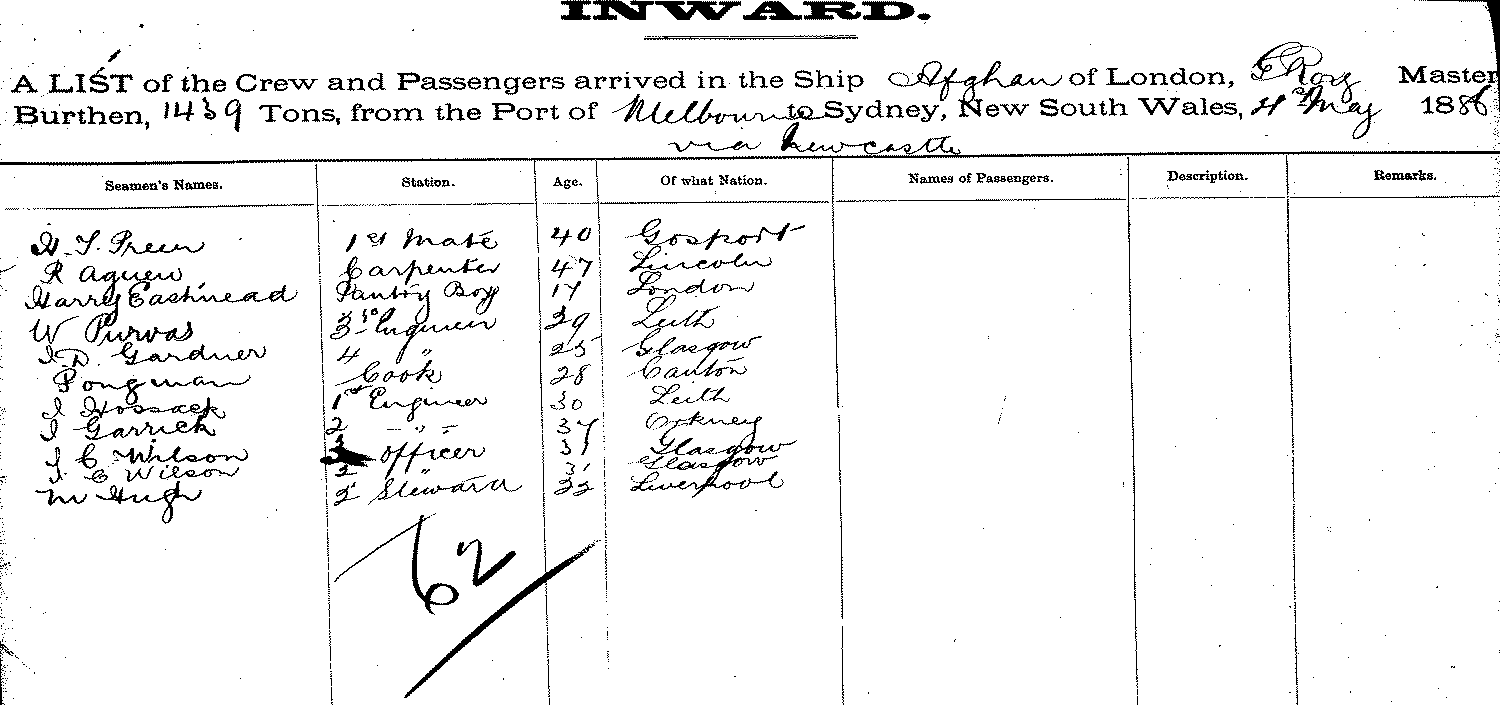 INWARD.
A LIST of the Crew and Passengers arrived in the Ship Afghan of London, G Roy Master
Burthen, 1439 Tons, from the Port of Melbourne to Sydney, New South Wales, 4th May 1886
via Newcastle
Seamen's Names. Station. Age. Of what Nation. Names of Passengers. Description. Remarks.
H. T. Preen 1st Mate 40 Gosport
R Agnew Carpenter 47 Lincoln
Harry Eastmead Pantry Boy 17 London
W Purvas 3rd Engineer 29 Leith
J D. Gardner 4 " 25 Glasgow
Pongman Cook 28 Canton
J Hossack 1st Engineer 30 Leith
J Garrick 2 - " - 37 Orkney
J C Wilson 3 officer 31 Glasgow
J. C Wilson 2 " 31 Glasgow
M Hugh 2 Steward 22 Liverpool
62